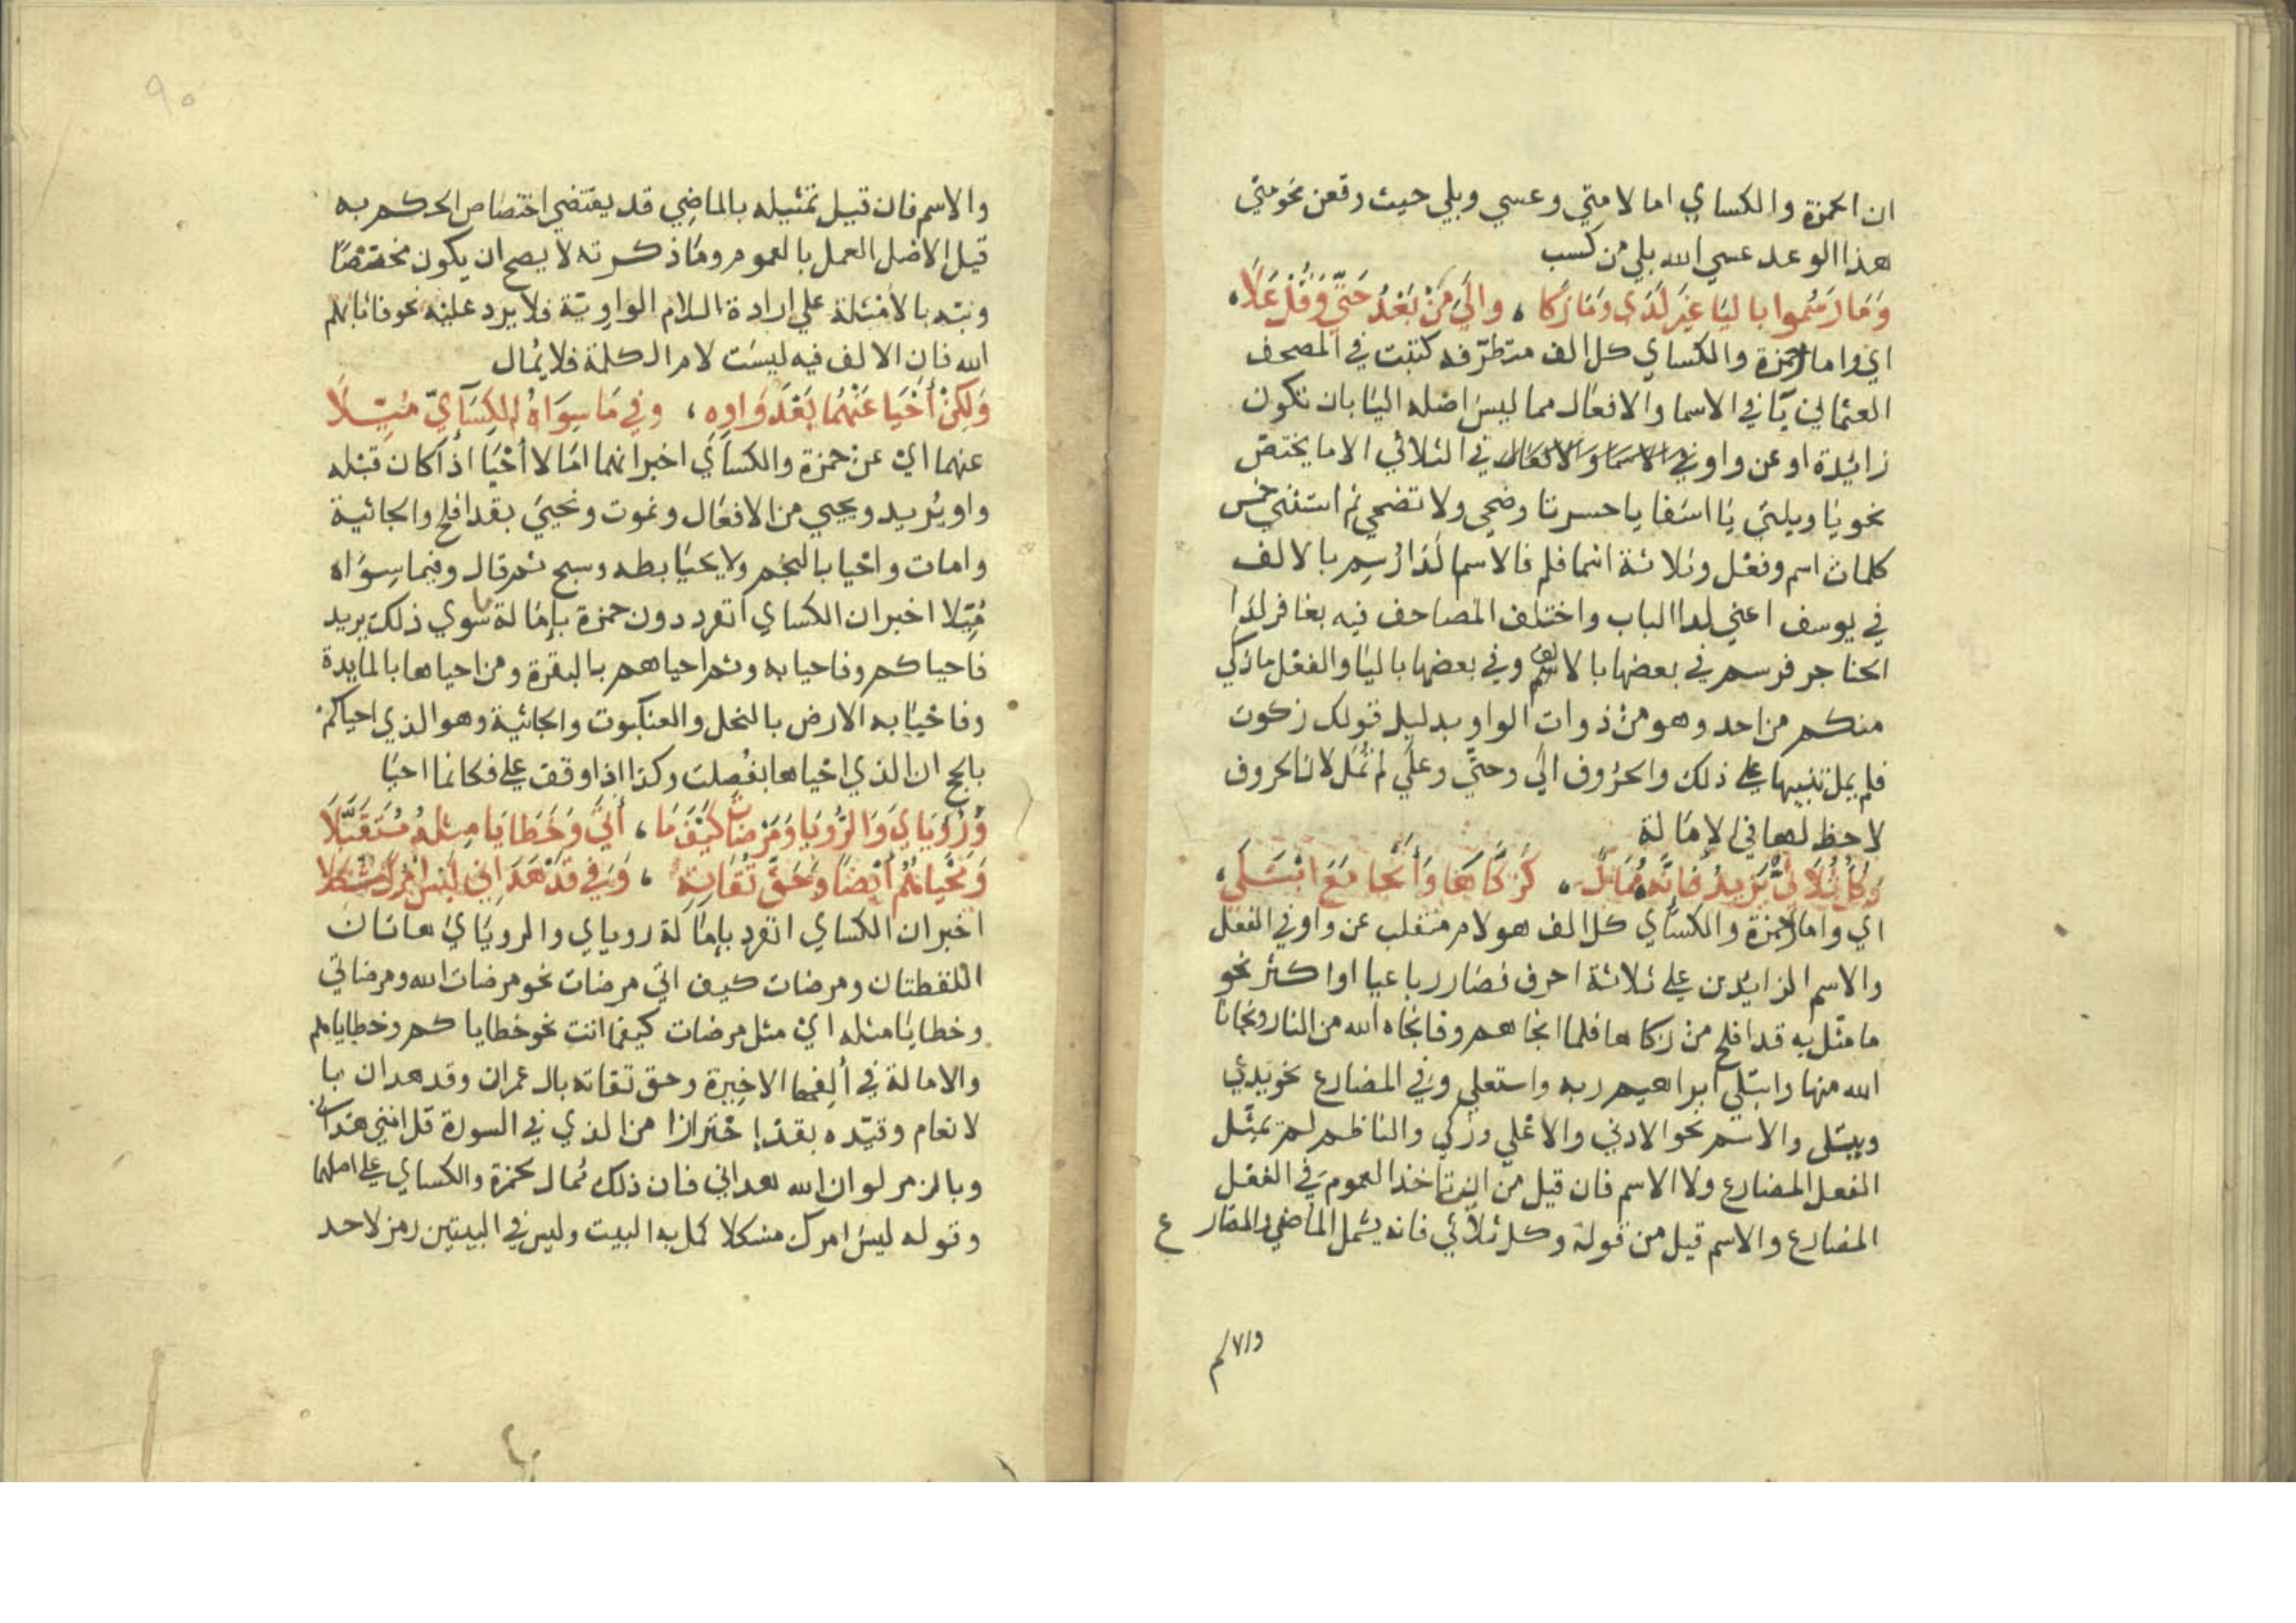 ان الحمزة والكساي امالا متي وعسي وبلي حيث وقعن نحو متي
هذا الوعد عسي الله بلي من كسب
وَمَا رَسَمُوا باليَا غَيرَ لَدَى وَمَا زَكا ، والَي مِنْ بَعْدُ حَتَّي وَقُلْ عَلَا ،
اي واما لحمزة والكساي كل الف متطرفه كتبت في المصحف
العثماني يآ في الاسما والافعال مما ليس اصله اليا بان تكون
زائدة او عن واو في الاسما والافعال في الثلاثي الا ما يختص
نحو يا ويلتي يا اسفا يا حسرتا وضحي ولا تضحي ثم استثني خمس
كلمات اسم وفعل وثلاثة اسما فلم فالاسم لدا رُسِم بالالف
في يوسف اعني لدا الباب واختلف المصاحف فيه بغافر لدا
الحناجر فرسم في بعضها بالالف وفي بعضها باليا والفعل ما زكي
منكم من احد وهو من ذوات الواو بدليل قولك زكوت
فلم يمل تنبيها علي ذلك والحروف الي وحتي وعلي لم تمل لان الحروف
لا حظ لها في الإمالة
وَكُلُّ ثُلَاثيٍّ يَزِيدُ فَإنّه مُمَالٌ ، كَزَكَّاهَا وَأَنْجَا مَعَ ابْتَلَي ،
اي واما لحمزة والكساي كل الف هو لام منقلب عن واو في الفعل
والاسم الزايدين علي ثلاثة احرف فصار رباعيا او اكثر نحو
ما مثل به قد افلح من زكاها فلما انجاهم وفانجاه الله من النار ونجانا
الله منها وابتلي ابراهيم ربه واستعلي وفي المضارع نحو يدعي
ويبتلى والاسم نحو الادني والاعلي وزكي والناظم لم يمثل
الفعل المضارع ولا الاسم فان قيل من اين تاخذ العموم في الفعل
المضارع والاسم قيل من قوله وكل ثلاثي فانه يشمل الماضي والمضارع
والاسم فان قيل تمثيله بالماضِي قد يقتضي اختصاص الحكم به
قيل الاصل العمل بالعموم وما ذكرته لا يصح ان يكون مخصصا
ونبّه بالامثلة علي ارادة اللام الواويّة فلا يرد عليه نحو فاثابهم
الله فان الالف فيه ليست لام الكلمة فلا يُمال
وَلكِنْ أَحْيَا عَنْهُمَا بَعْدَ وَاوِهِ ، وفي مَا سِوَاهُ للكِسَآيِّ مُيِّلَا
عنهما اي عن حمزة والكسآي اخبر انهما امالا أحْيَا اذا كان قبله
واو يُريد ويحيي من الافعال ونموت ونحيي بقد افلح والجاثية
وامات واحيا بالنجم ولا يحيا بطه وسبح ثم قال وفيما سِوَاه
مُيِّلا اخبر ان الكساي انفرد دون حمزة بإمالة ما سوي ذلك يريد
فاحياكم وفاحيا به وثم احياهم بالبقرة ومن احياها بالمايدة
وفاحيا به الارض بالنحل والعنكبوت والجاثية وهو الذي احياكم
بالحج ان الذي احياها بفُصلت وكذا اذا وقف علي فكانما احيا
وَرُؤيَايَ وَالرُّويَا وَمَرْضَاتِ كَيْفَمَا ، أَتَي وَخَطايَا مِثلُهُ مُتَقَبَّلَا
وَمَحْيَاهُمُ أَيْضًا وَحَقَّ تُقَاتِهِ ، وَفِي قَدْ هَدَانِي لَيْسَ امْرُكَ مُشكلا
اخبر ان الكساي انفرد بإمالة روياي والرويَايْ هاتان
اللفظتان ومرضات كيف اتي مرضات نحو مرضات الله ومرضاتي
وخطايا مثله ايْ مثل مرضات كيفما اتت نحو خطاياكم وخطاياهم
والامالة في ألِفها الاخِيرة وحق تقاته بال عمران وقد هدان با
لانعام وقيّده بقد إحْترازا من الذي في السورة قل انني هداني
وبالزمر لو ان الله هداني فان ذلك ممال لحمزة والكساي علي اصلهما
وقوله ليس امرك مشكلا كمل به البيت وليس في البيتين رمز لاحد